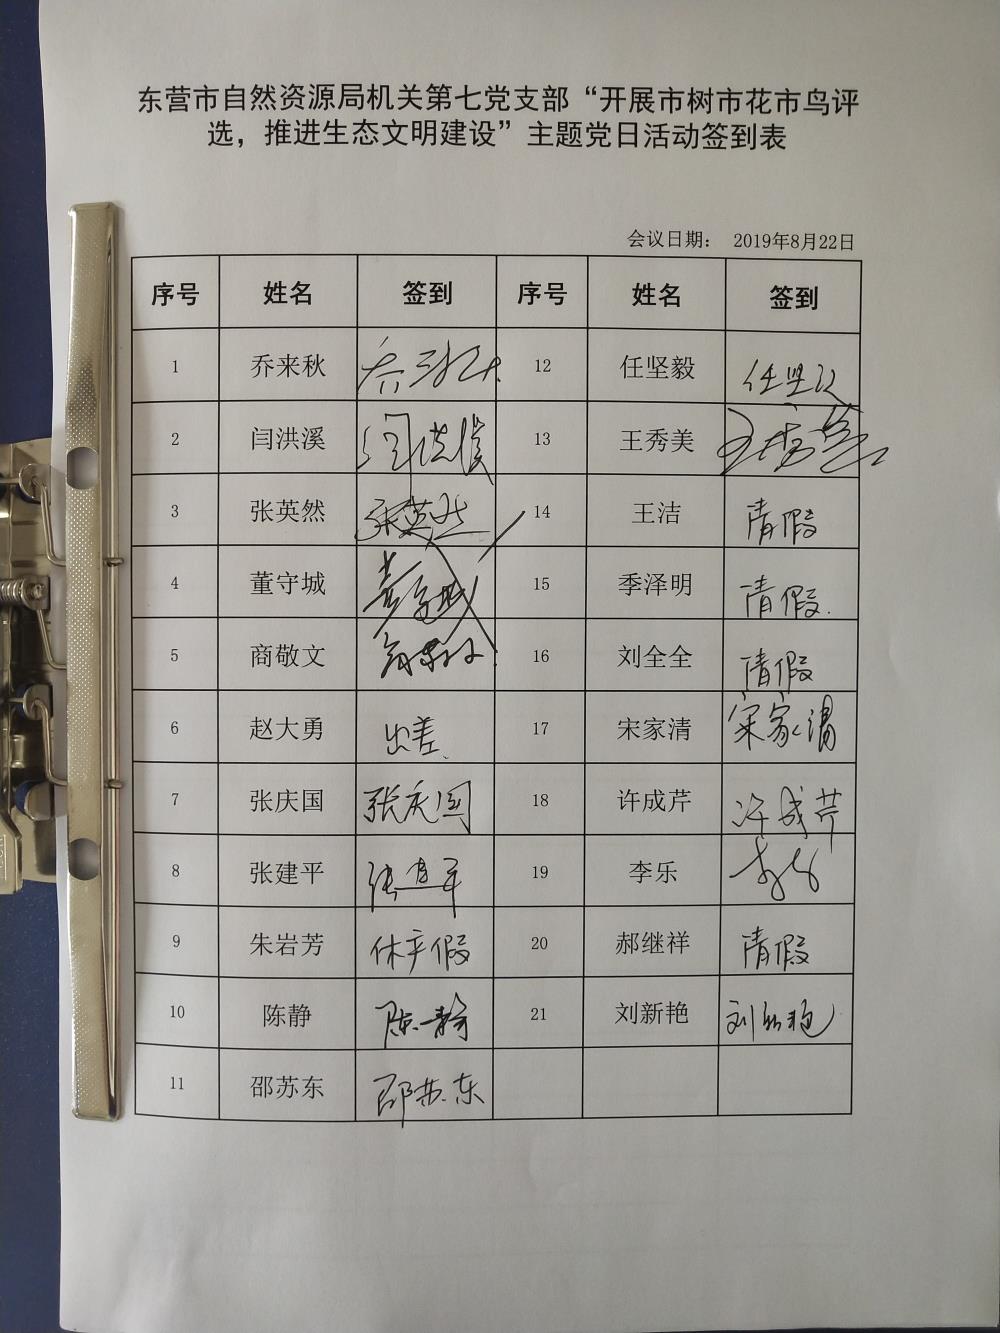 东营市自然资源局机关第七党支部“开展市树市花市鸟评
选，推进生态文明建设”主题党日活动签到表
会议日期： 2019年8月22日
序号 姓名 签到 序号 姓名 签到
1 乔来秋 乔来秋 12 任坚毅 任坚毅
2 闫洪溪 闫洪溪 13 王秀美 王秀美
3 张英然 张英然 14 王洁 请假
4 董守城 董守城 15 季泽明 请假
5 商敬文 商敬文 16 刘全全 请假
6 赵大勇 出差 17 宋家清 宋家清
7 张庆国 张庆国 18 许成芹 许成芹
8 张建平 张建平 19 李乐 李乐
9 朱岩芳 休产假 20 郝继祥 请假
10 陈静 陈静 21 刘新艳 刘新艳
11 邵苏东 邵苏东